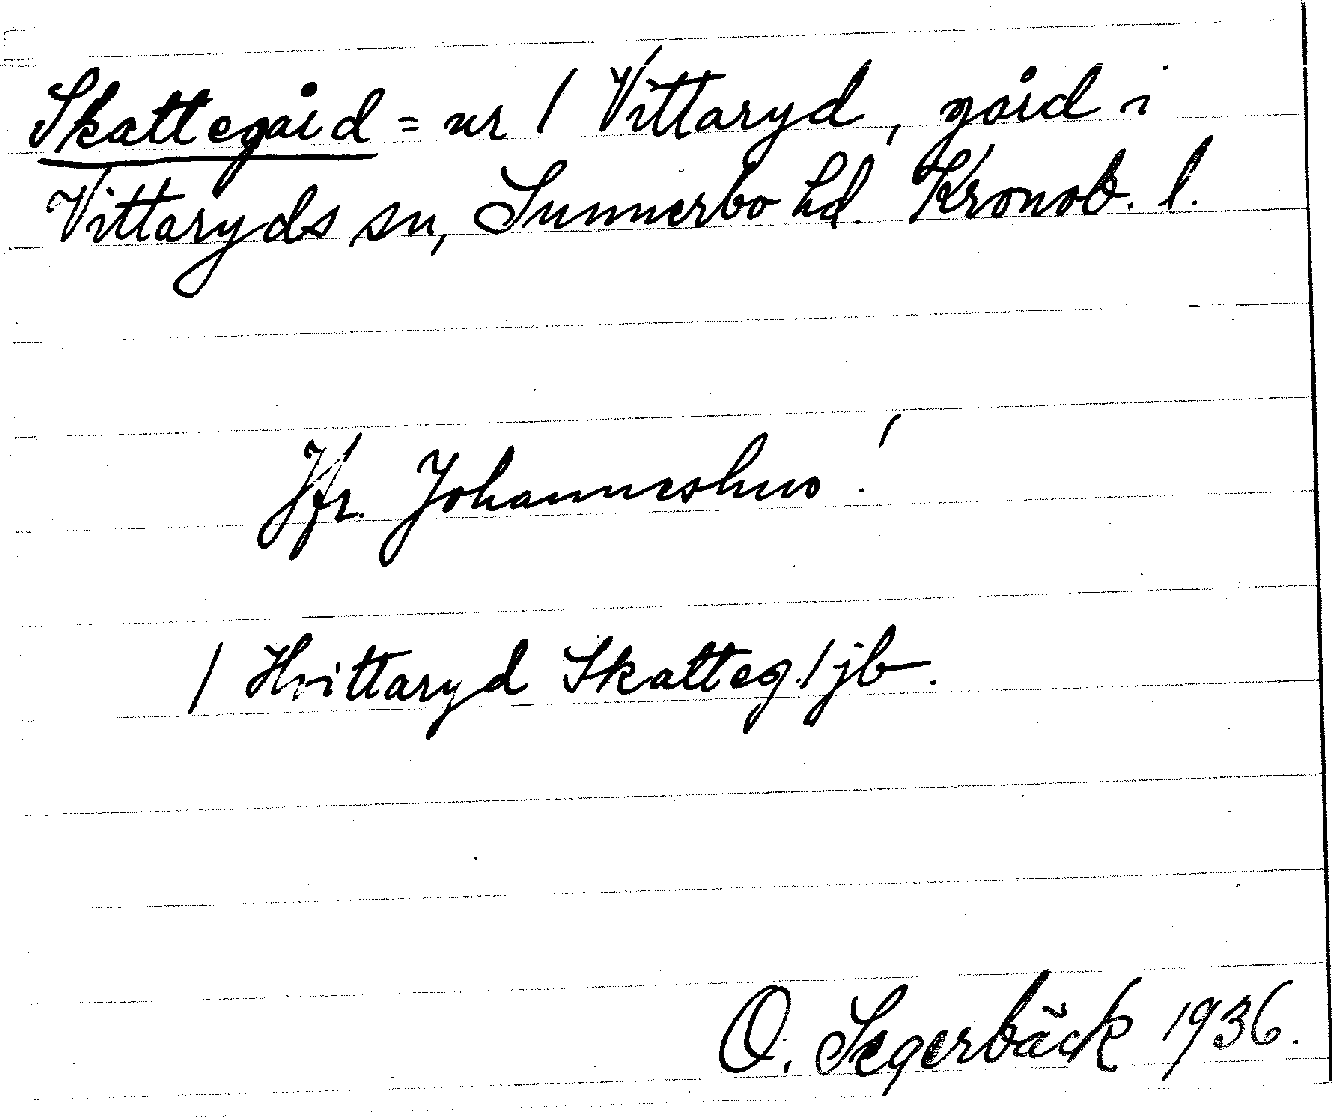 Skattegård = nr 1 Vittaryd, gård i
Vittaryds sn, Sunnerbo hd. Kronob. l.
Jfr. Johanneshus!
1 Hvittaryd Skatteg. 1 jb.
O. Segerbäck 1936.